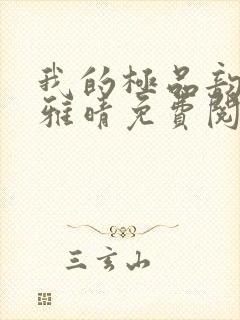 我的極品
雅晴免費閱
三玄山